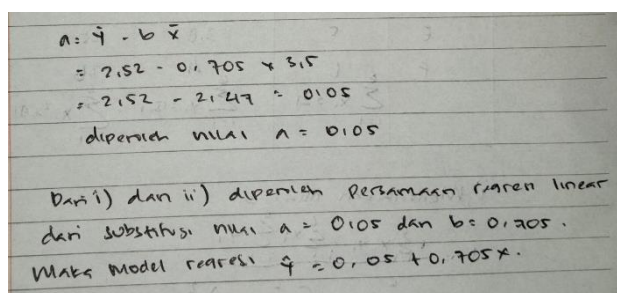 a = ȳ - b x̄
= 2,52 - 0,705 x 3,5
= 2,52 - 2,47 = 0,05
diperoleh nilai a = 0,05
Dari i) dan ii) diperoleh persamaan regresi linear
dari substitusi nilai a = 0,05 dan b = 0,705.
Maka model regresi ŷ = 0,05 + 0,705x.